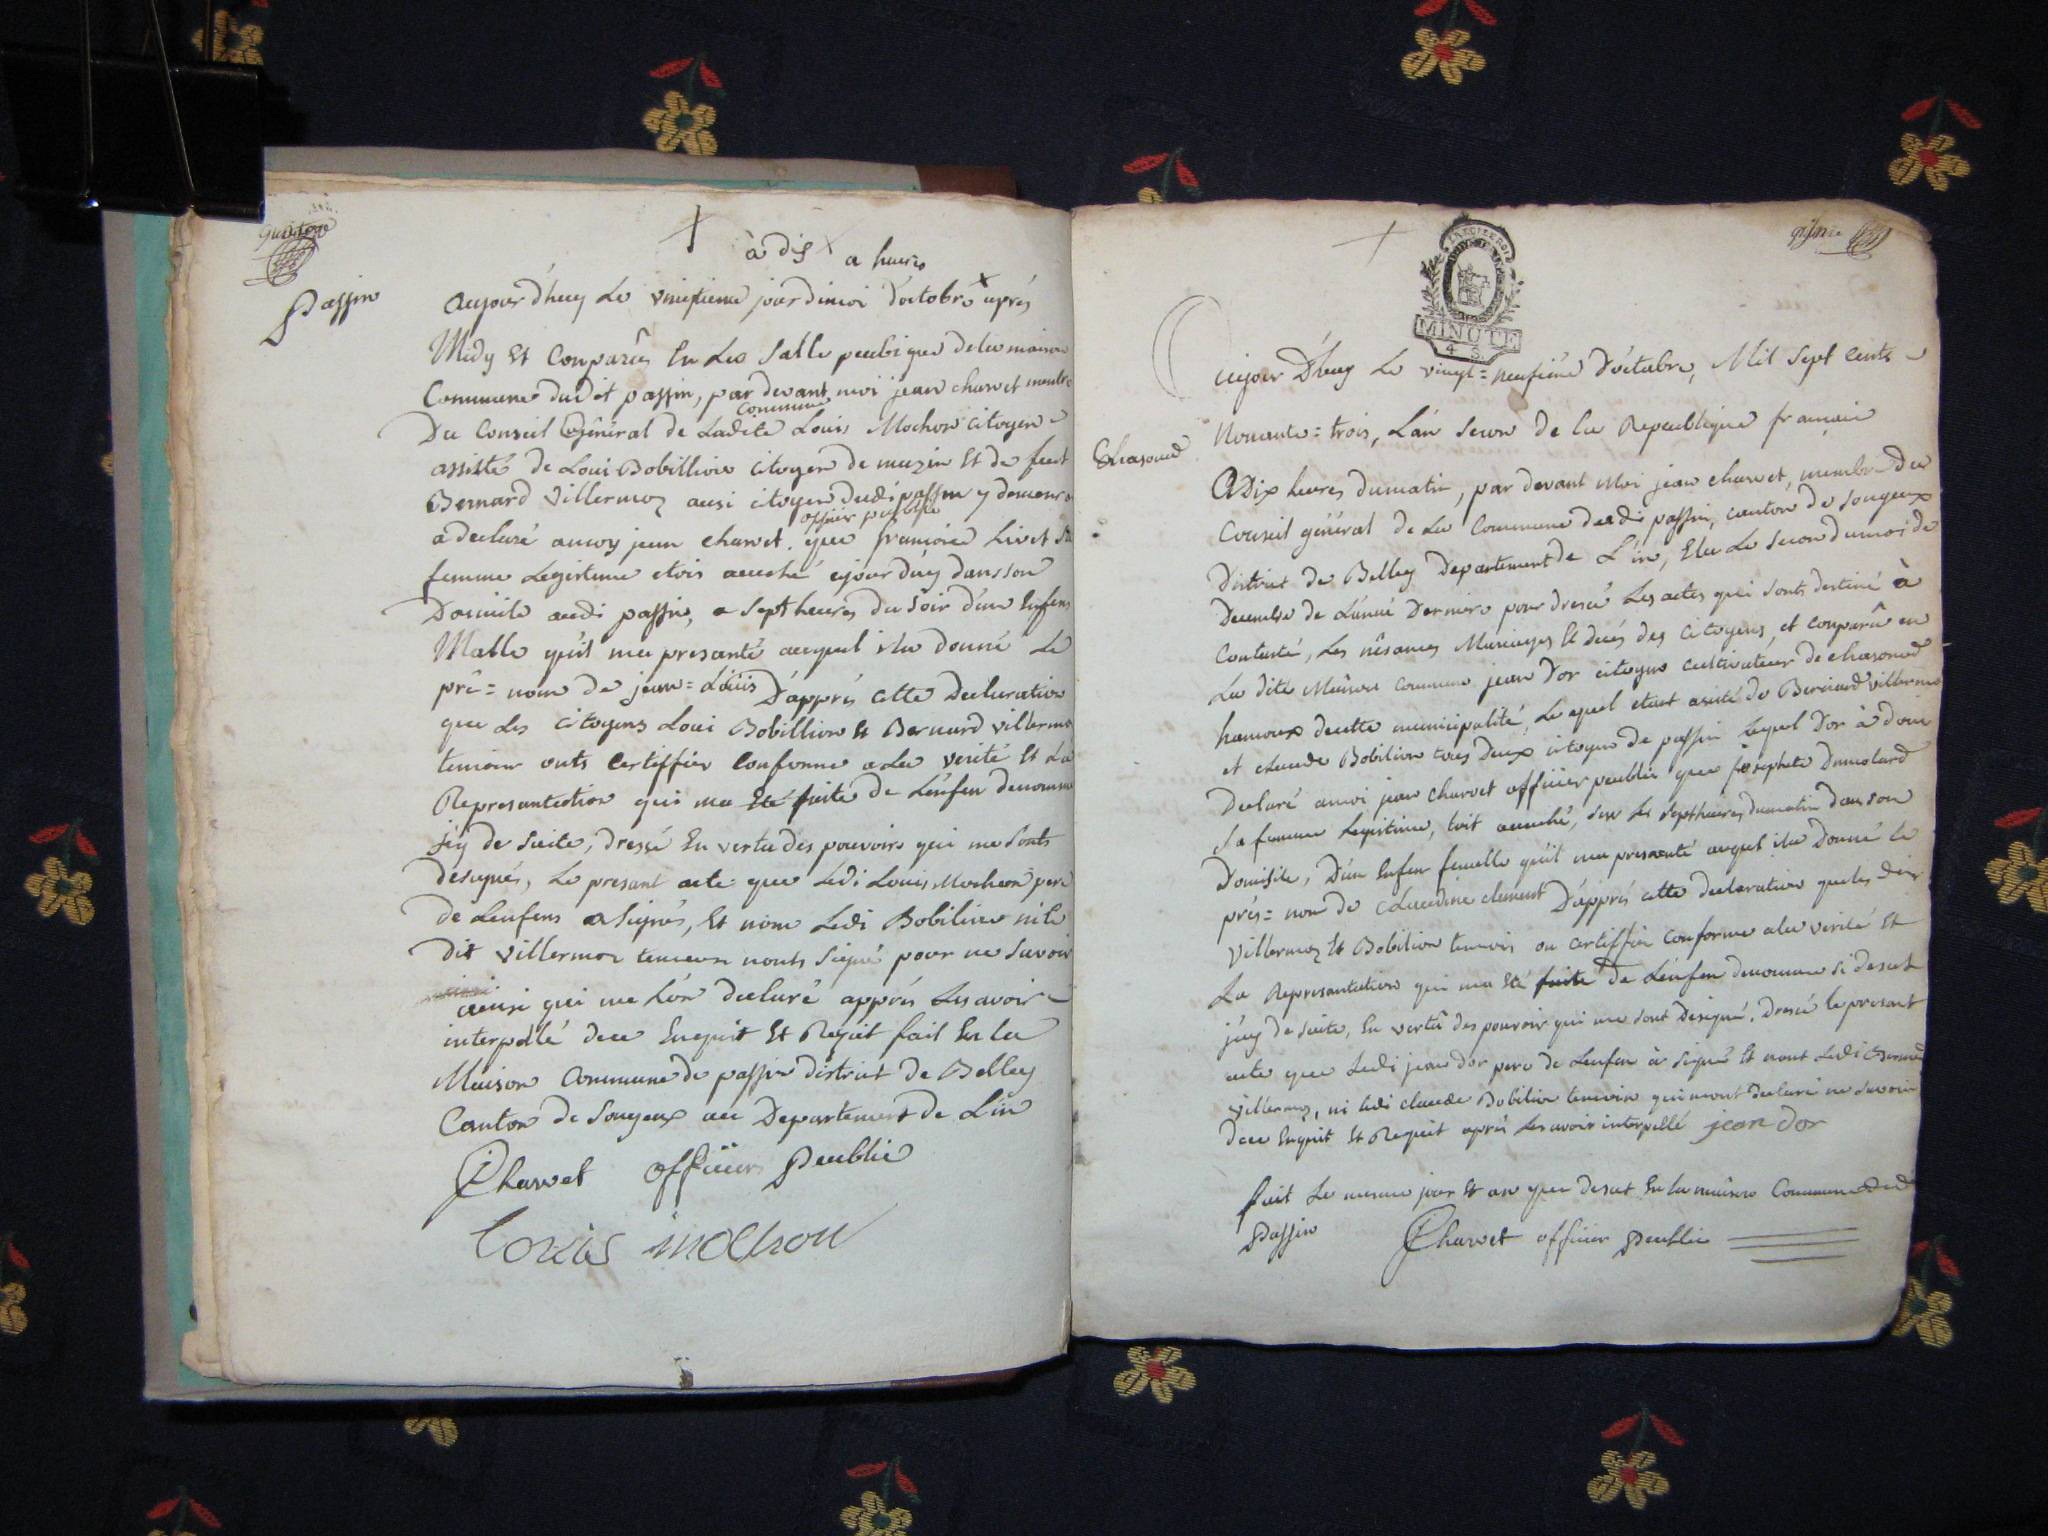 à dis a heures
passin
aujour d'huy Le vingtieme jour dimoi d'octobre apres
Midy Et Conparûs En Les Salle peubique dela maison
Commune dudit passin, par devant moi jean charvet membre
Du Conseil Général de Ladite Commune Louis Mochon Citoyen
assisté de Loui Bobillion Citoyen de muzin Et de
Bernard Villermoz ausi Citoyen dudi passin y demeur
a declaré amoy jean charvet officier peublic que françoise Livet Sa
femme Legistime etois acuché ajourduy dansson
Domicile audi passin, a Sept heures du Soir d'un Enfens
Malle qu'il ma presanté auquel ila donné Le
prê=nom de jean=Loüis D'apprés cette Declaration
que Les Citoyens Loui Bobillion Et Bernard villermo
temoin onts Certiffier Conforme a La verité Et La
Represantation qui ma Eté faite de L'enfen denomme
j'ey de suite, dressé En vertu des pouvoirs qui me Sonts
desigués, Le presant acte que Ledi Louis Mochon pere
de Lenfens a Seignés, Et nom Ledi Bobilion ni Le
Dit Villermoz temoin nonts Signé pour ne Savoir
ainsi qui me L'on declaré apprés Les avoir
interpellé dece Enquit Et Requit fait En La
Maison Commune de passin district de Belley
Canton de Songeux au Departement de L'in
Charvet officier peublic
Louis mochon
MINUTE
4 S.
aujour D'huy Le vingt=neufieme D'octobre, Mil Sept Cents
Nonante=trois, L'an Secon De la Republique française
Chasonod
ADix heures dumatin, par devant Moi jean charvet, membre Du
Conseil général de La Commune dudi passin, canton de Songeux
District de Belley Departement de L'in, Elu Le Secon dumois de
Decembre de L'anné Dernier pour dressé Les actes qui Sonts destiné à
Contasté, Les nêsances Mariages Et decés des Citoyens, et Conparû en
La dite Mâison commune jean D'or citoyen Cultivateur de chasonod
hameaux decette municipalité, Lequel etant asisté de Bernard villermo
et claude Bobilion tous Deux citoyen de passin Lequel D'or à donc
Declaré amoi jean charvet officier peublic que josephete Dumolard
Sa femme Legitime, toit acuché, Sur Les Septheures dumatin dansson
Domisile, D'un Enfen femelle qu'il ma presanté auquel ila Donné Le
prés=nom de Claudine clement D'apprés cette declaration queles dis
Villermoz Et Bobilion temoin on Certiffié Conforme ala verité Et
La Represantation qui ma Eté faite de L'enfen denomme Si desut
j'ey de suite, En vertû des pouvoir qui me Sont Designé, dressé Le presant
acte que Ledi jean dor pere de Lenfen à Signé Et nont Ledi Bernard
Villermoz, ni Ledi claude Bobilion temoin quimont declaré ne Savoir
dece Enquit Et Requit aprés Lesavoir interpellé jean dor
fait Le meme jour Et an que desut En La mâison Commune dudi
Passin Charvet officier peublic